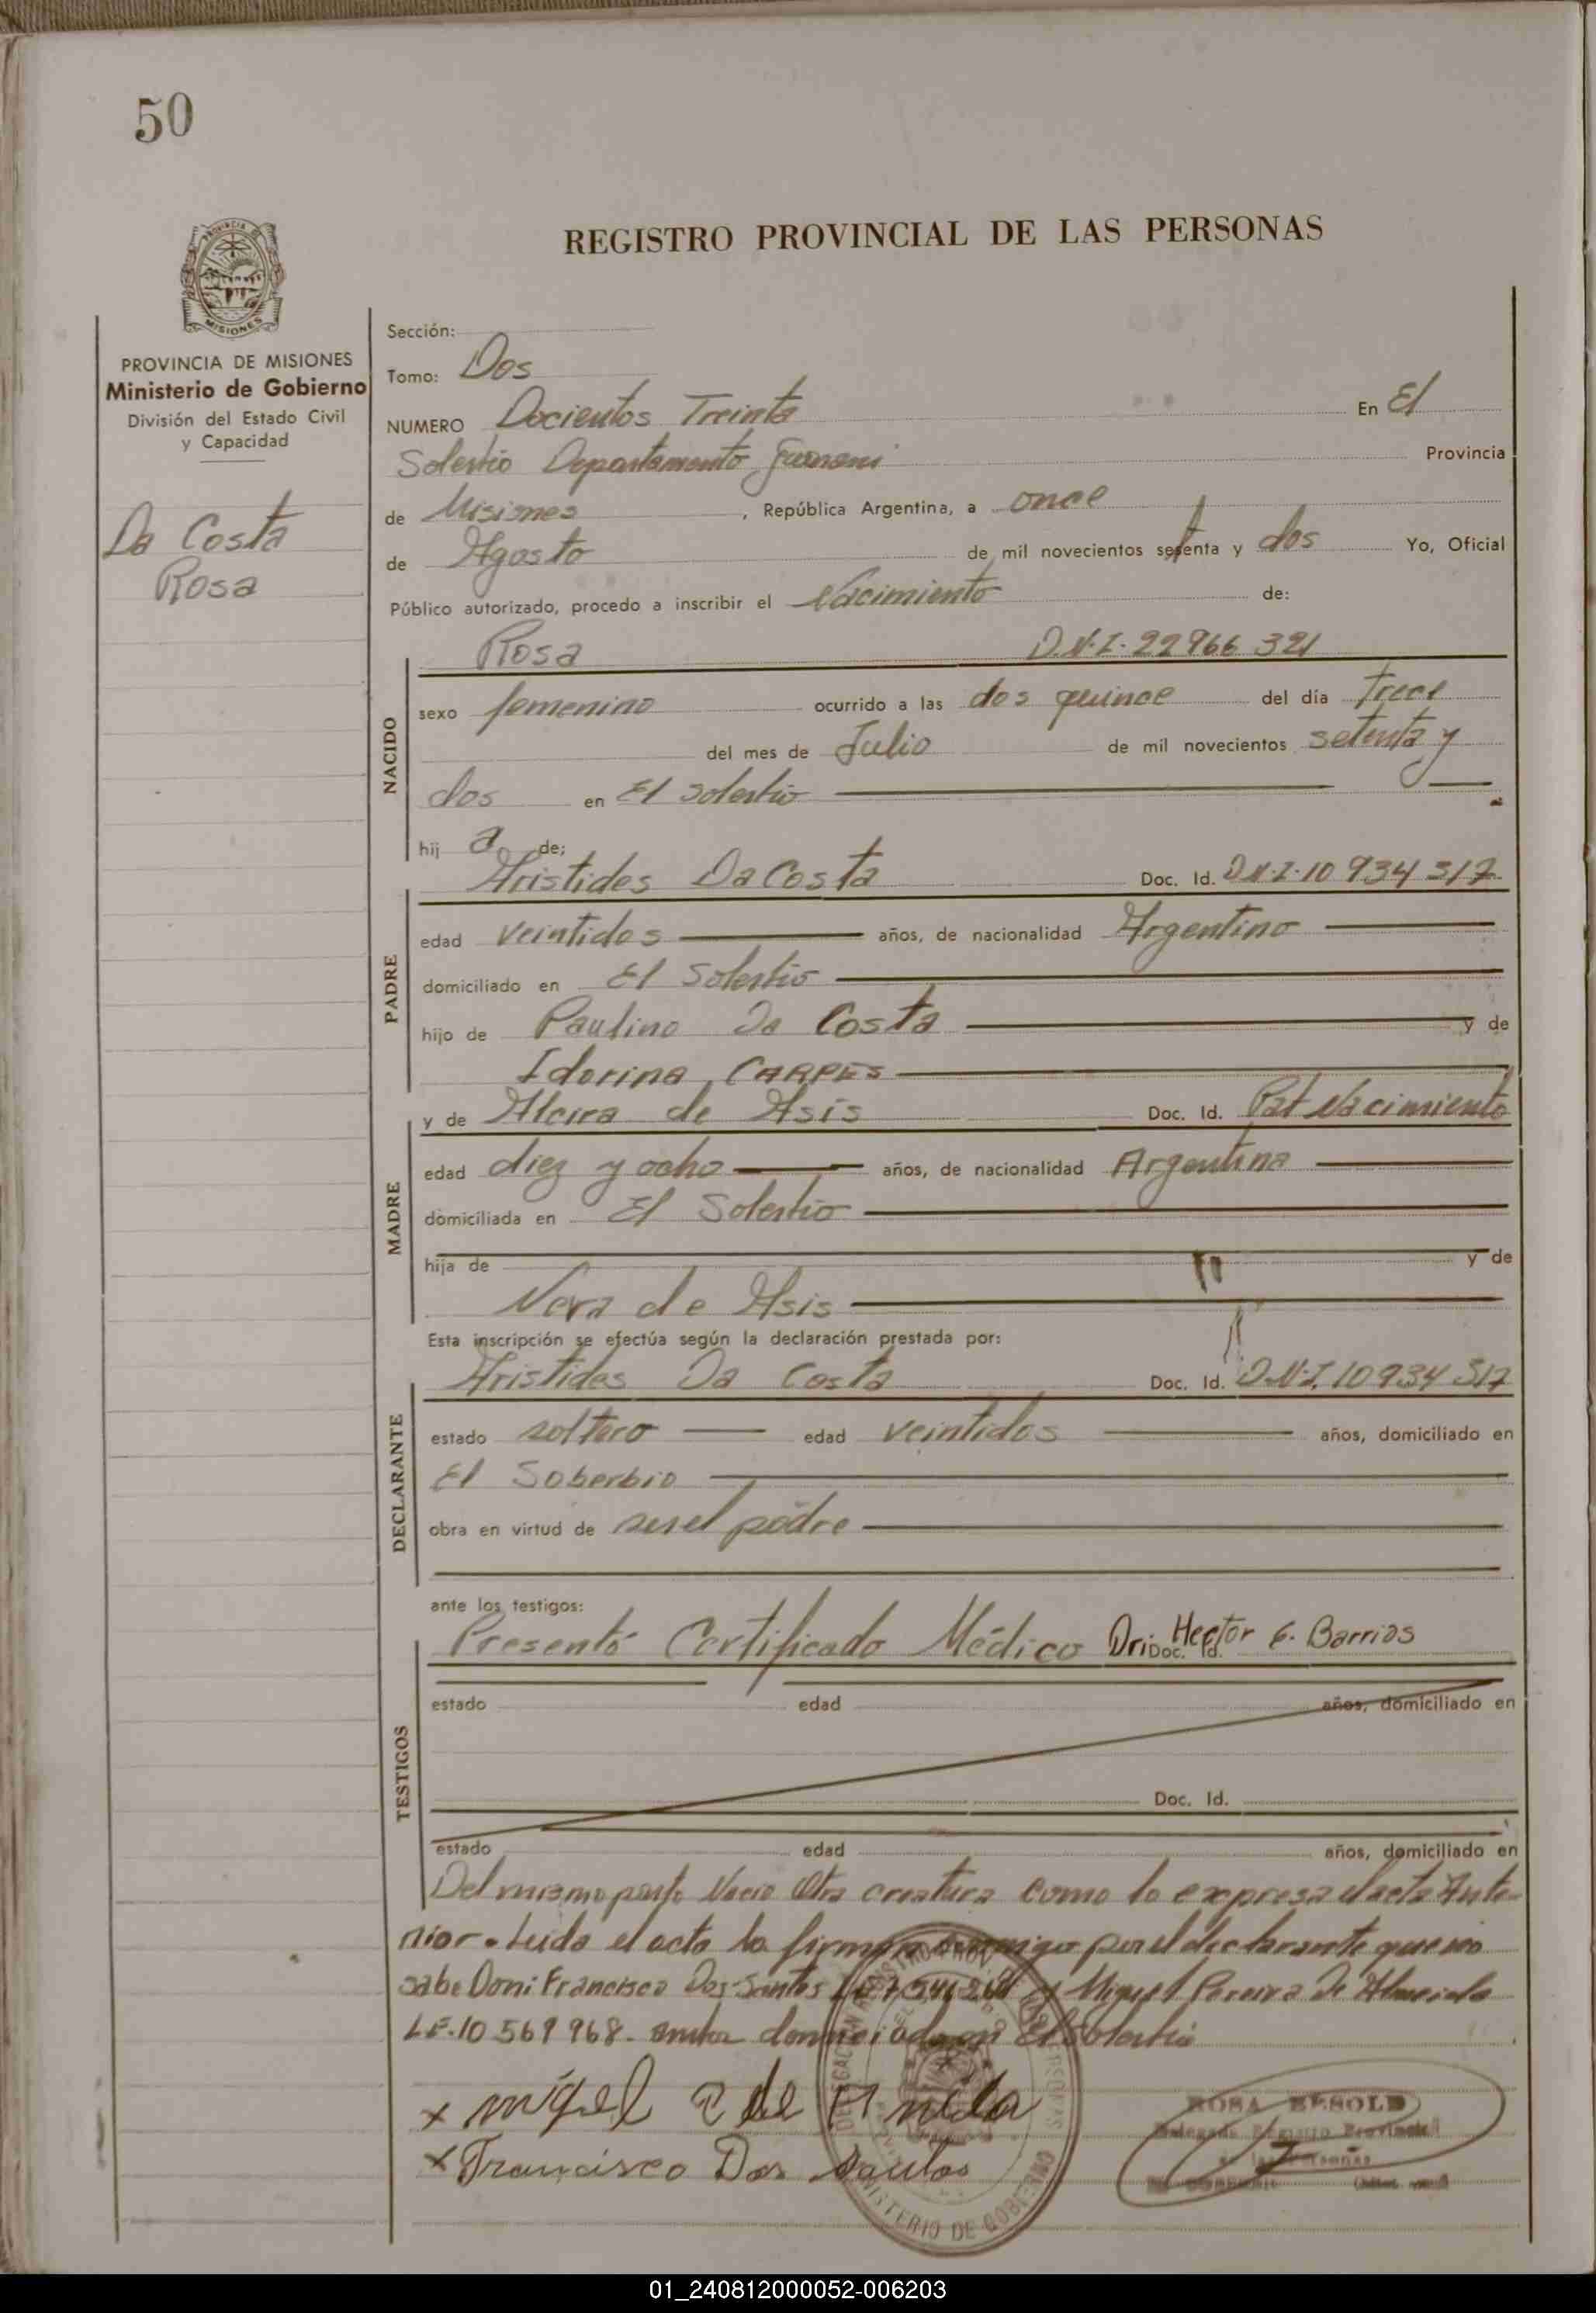 50
REGISTRO PROVINCIAL DE LAS PERSONAS
MISIONES
PROVINCIA DE MISIONES
Ministerio de Gobierno
División del Estado Civil
y Capacidad
Da Costa
Rosa
Sección:
Tomo: Dos
NUMERO Docientos Treinta En El
Soberbio Departamento Guarani Provincia
de Misiones , República Argentina, a once
de Agosto de mil novecientos setenta y dos Yo, Oficial
Público autorizado, procedo a inscribir el Nacimiento de:
Rosa D.N.I. 22966 321
NACIDO
sexo femenino ocurrido a las dos quince del día Trece
del mes de Julio de mil novecientos setenta y
dos en El Soberbio
hij a de;
Aristides Da Costa Doc. Id. D.N.I. 10 934 317
PADRE
edad veintidos años, de nacionalidad Argentino
domiciliado en El Soberbio
hijo de Paulino Da Costa y de
Idorina CARPES
y de Alcira de Asis Doc. Id. Pat Nacimiento
MADRE
edad diez y ocho años, de nacionalidad Argentina
domiciliada en El Soberbio
hija de y de
de Asis
Esta inscripción se efectúa según la declaración prestada por:
Aristides Da Costa Doc. Id. D.N.I. 10 934 317
DECLARANTE
estado soltero edad veintidos años, domiciliado en
El Soberbio
obra en virtud de ser el padre
ante los testigos:
Presentó Certificado Médico Dr: Doc. Id. Hector G. Barrios
TESTIGOS
estado edad años, domiciliado en
Doc. Id.
estado edad años, domiciliado en
Del mismo parto Nacio Otra creatura como lo expresa el acta Ante-
rior. Leida el acta la firman conmigo por el declarante que no
sabe Don: Francisco Dos Santos y Miguel Pereira De Almeida
L.E. 10 569 968. ambos domiciliados en El Soberbio
x migel P de
x Francisco Dos Santos
ROSA BESOLD
Delegada Registro Provincial
de las Personas
MINISTERIO DE GOBIERNO
01_240812000052-006203